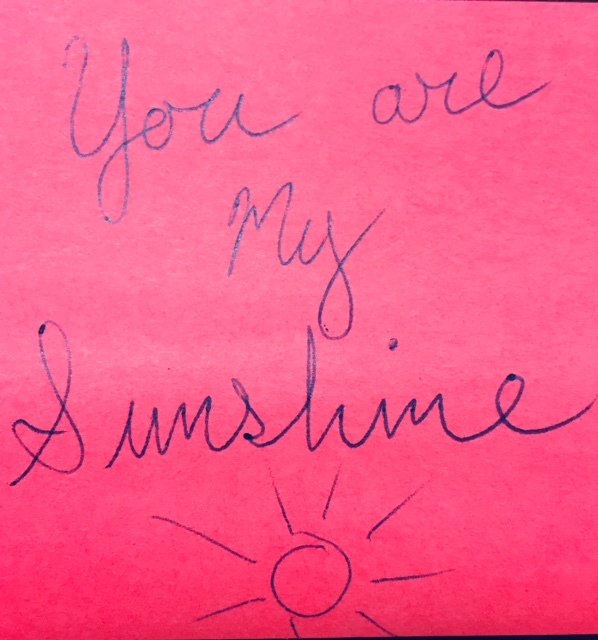 You are
My
Sunshine